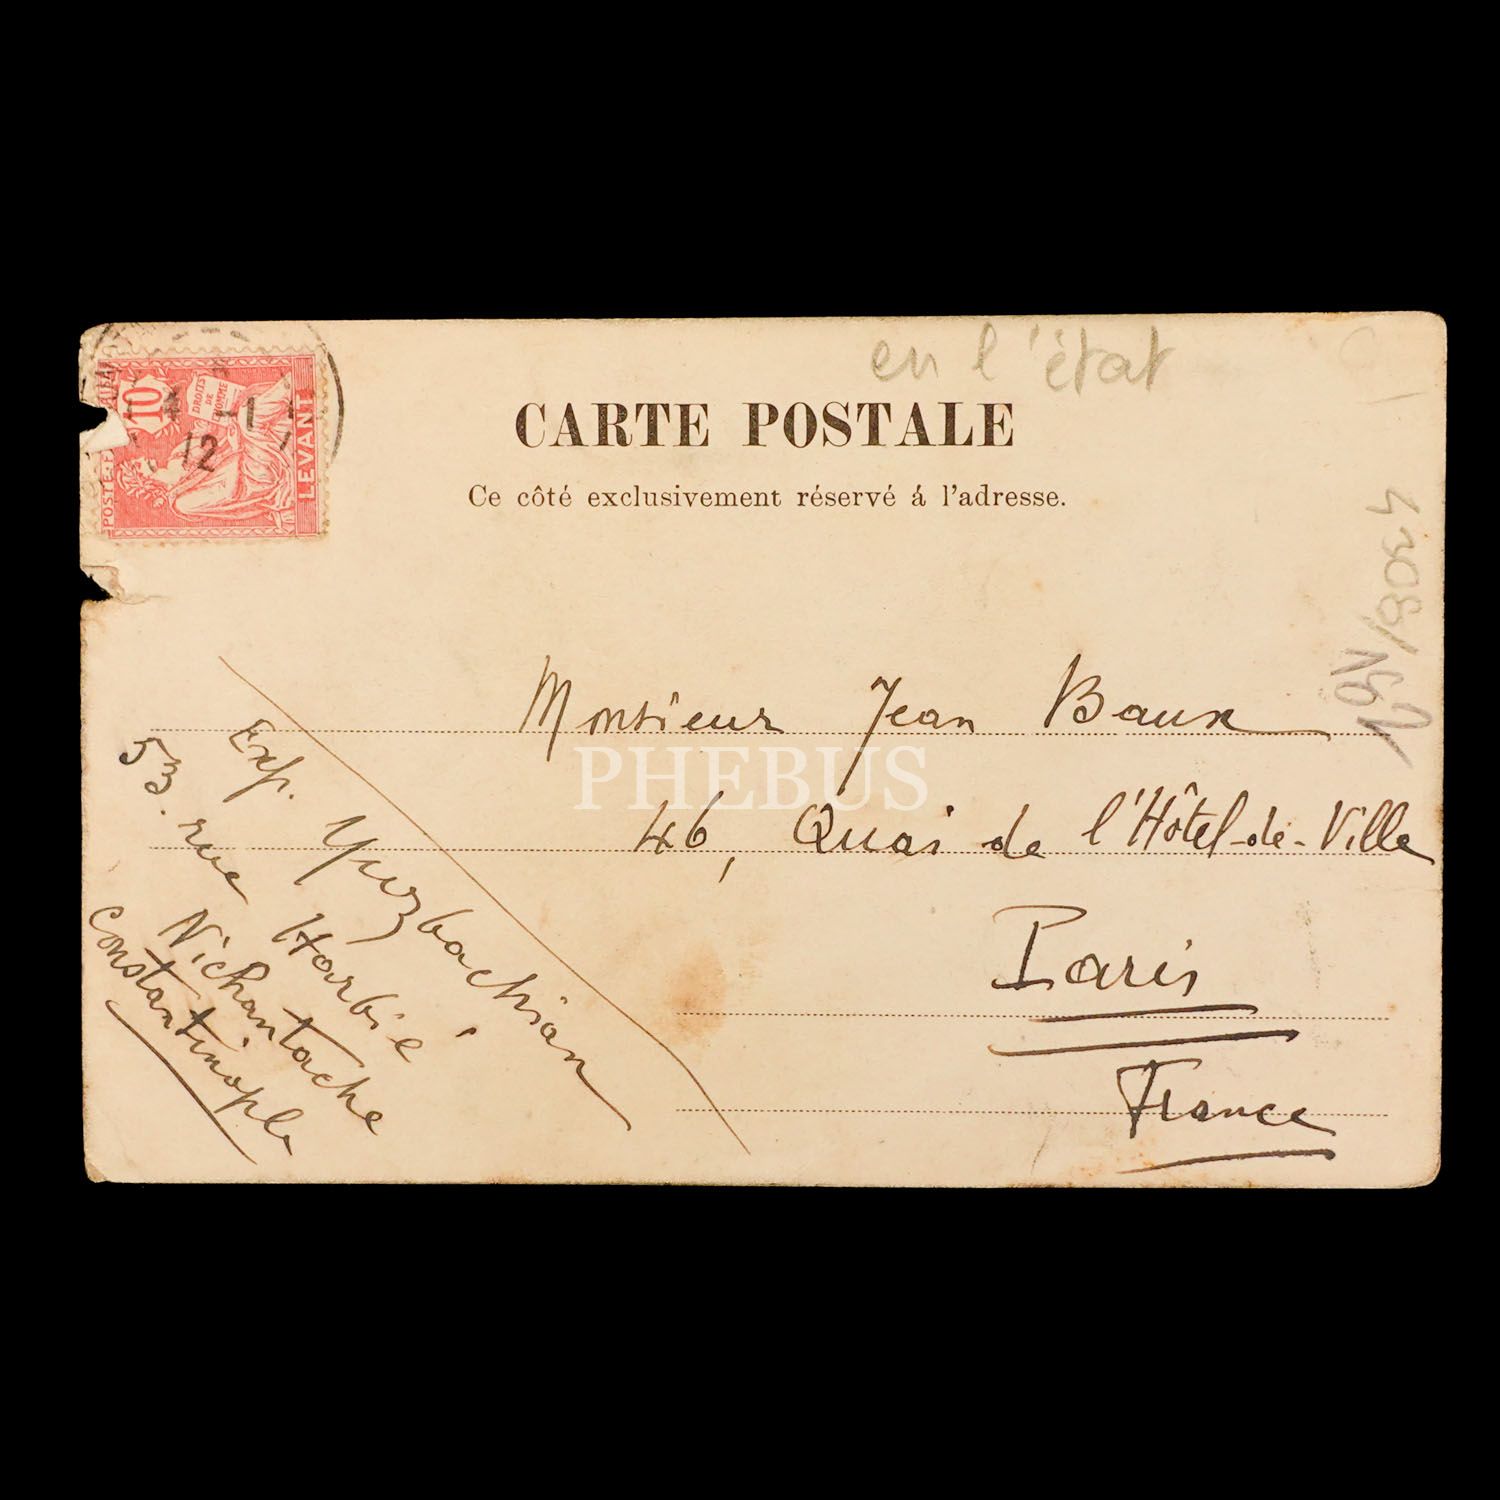 en l'état
CARTE POSTALE
Ce côté exclusivement réservé á l'adresse.
10
DROITS
DE
L'HOMME
LEVANT
POSTE
12
Monsieur Jean Baux
PHEBUS
46, Quai de l'Hôtel-de-Ville
Paris
France
Exp. Yuzbachian
53. rue Harbié
Nichantache
Constantinople